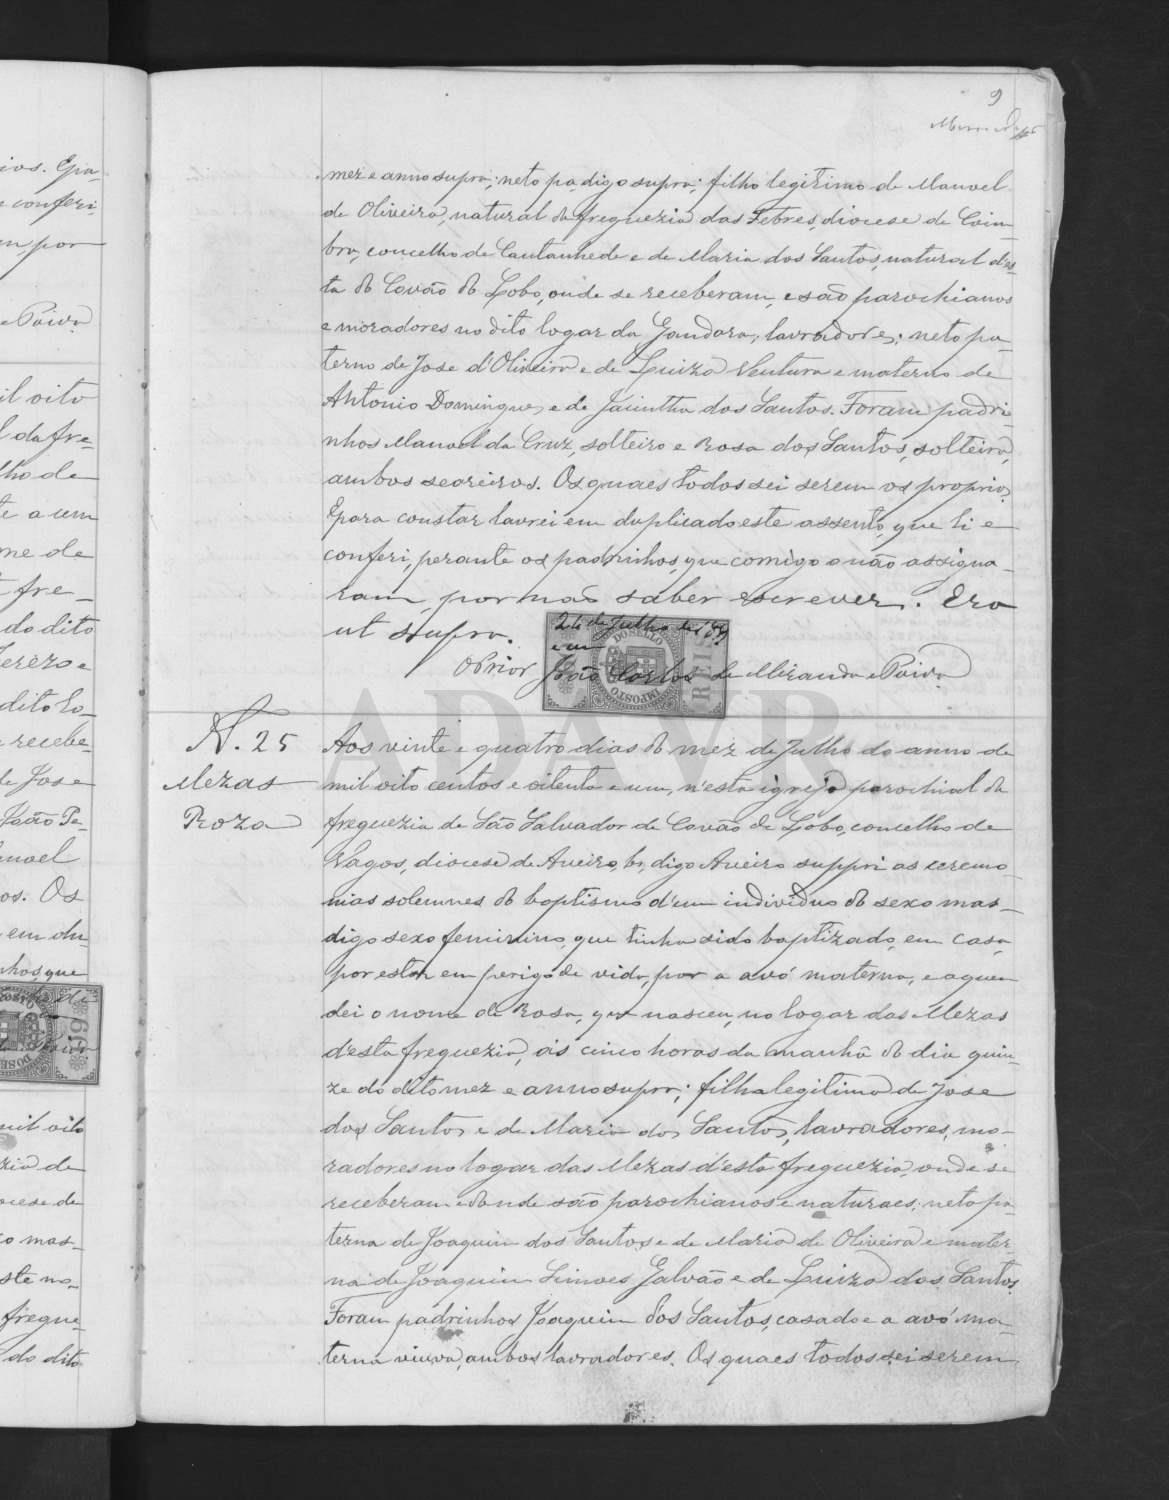 9
mez e anno supra; neto pa, digo supra; filho legitimo de Manoel
de Oliveira, natural da freguezia das Febres, diocese de Coim-
bra, concelho de Cantanhede e de Maria dos Santos, natural d'es-
ta do Covão do Lobo, onde se receberam, e são parochianos
e moradores no dito logar da Gandara, lavradores; neto pa-
terno de Jose d'Oliveira e de Luiza Ventura e materno de
Antonio Domingues e de Jacintha dos Santos. Foram padri-
nhos Manoel da Cruz, solteiro e Rosa dos Santos, solteira,
ambos seareiros. Os quaes todos sei serem os proprios.
E para constar lavrei em duplicado este assento, que li e
conferi, perante os padrinhos, que comigo o não assigna-
ram, por não saber escrever. Era
ut supra.
24 de Julho de 1881
O Prior João Carlos de Miranda e Paiva
IMPOSTO DO SELLO
REIS
ADAVR
N. 25
Mezas
Roza
Aos vinte e quatro dias do mez de Julho do anno de
mil oito centos e oitenta e um, n'esta igreja parochial da
freguezia de São Salvador de Covão do Lobo, concelho de
Vagos, diocese de Aveiro, br, digo Aveiro suppri as ceremo-
nias solemnes do baptismo d'um individuo do sexo mas-
digo sexo feminino, que tinha sido baptizado, em casa,
por estar em perigo de vida, por a avó materna, e a quem
dei o nome de Rosa, que nasceu, no logar das Mezas
d'esta freguezia, ás cinco horas da manhã do dia quin-
ze do dito mez e anno supra; filha legitima de Jose
dos Santos e de Maria dos Santos, lavradores, mo-
radores no logar das Mezas d'esta freguezia, onde se
receberam e donde são parochianos e naturaes; neta pa-
terna de Joaquim dos Santos e de Maria de Oliveira e mater-
na de Joaquim Simoes Galvão e de Luiza dos Santos.
Foram padrinhos Joaquim dos Santos, casado e a avó ma-
terna viuva, ambos lavradores. Os quaes todos sei serem